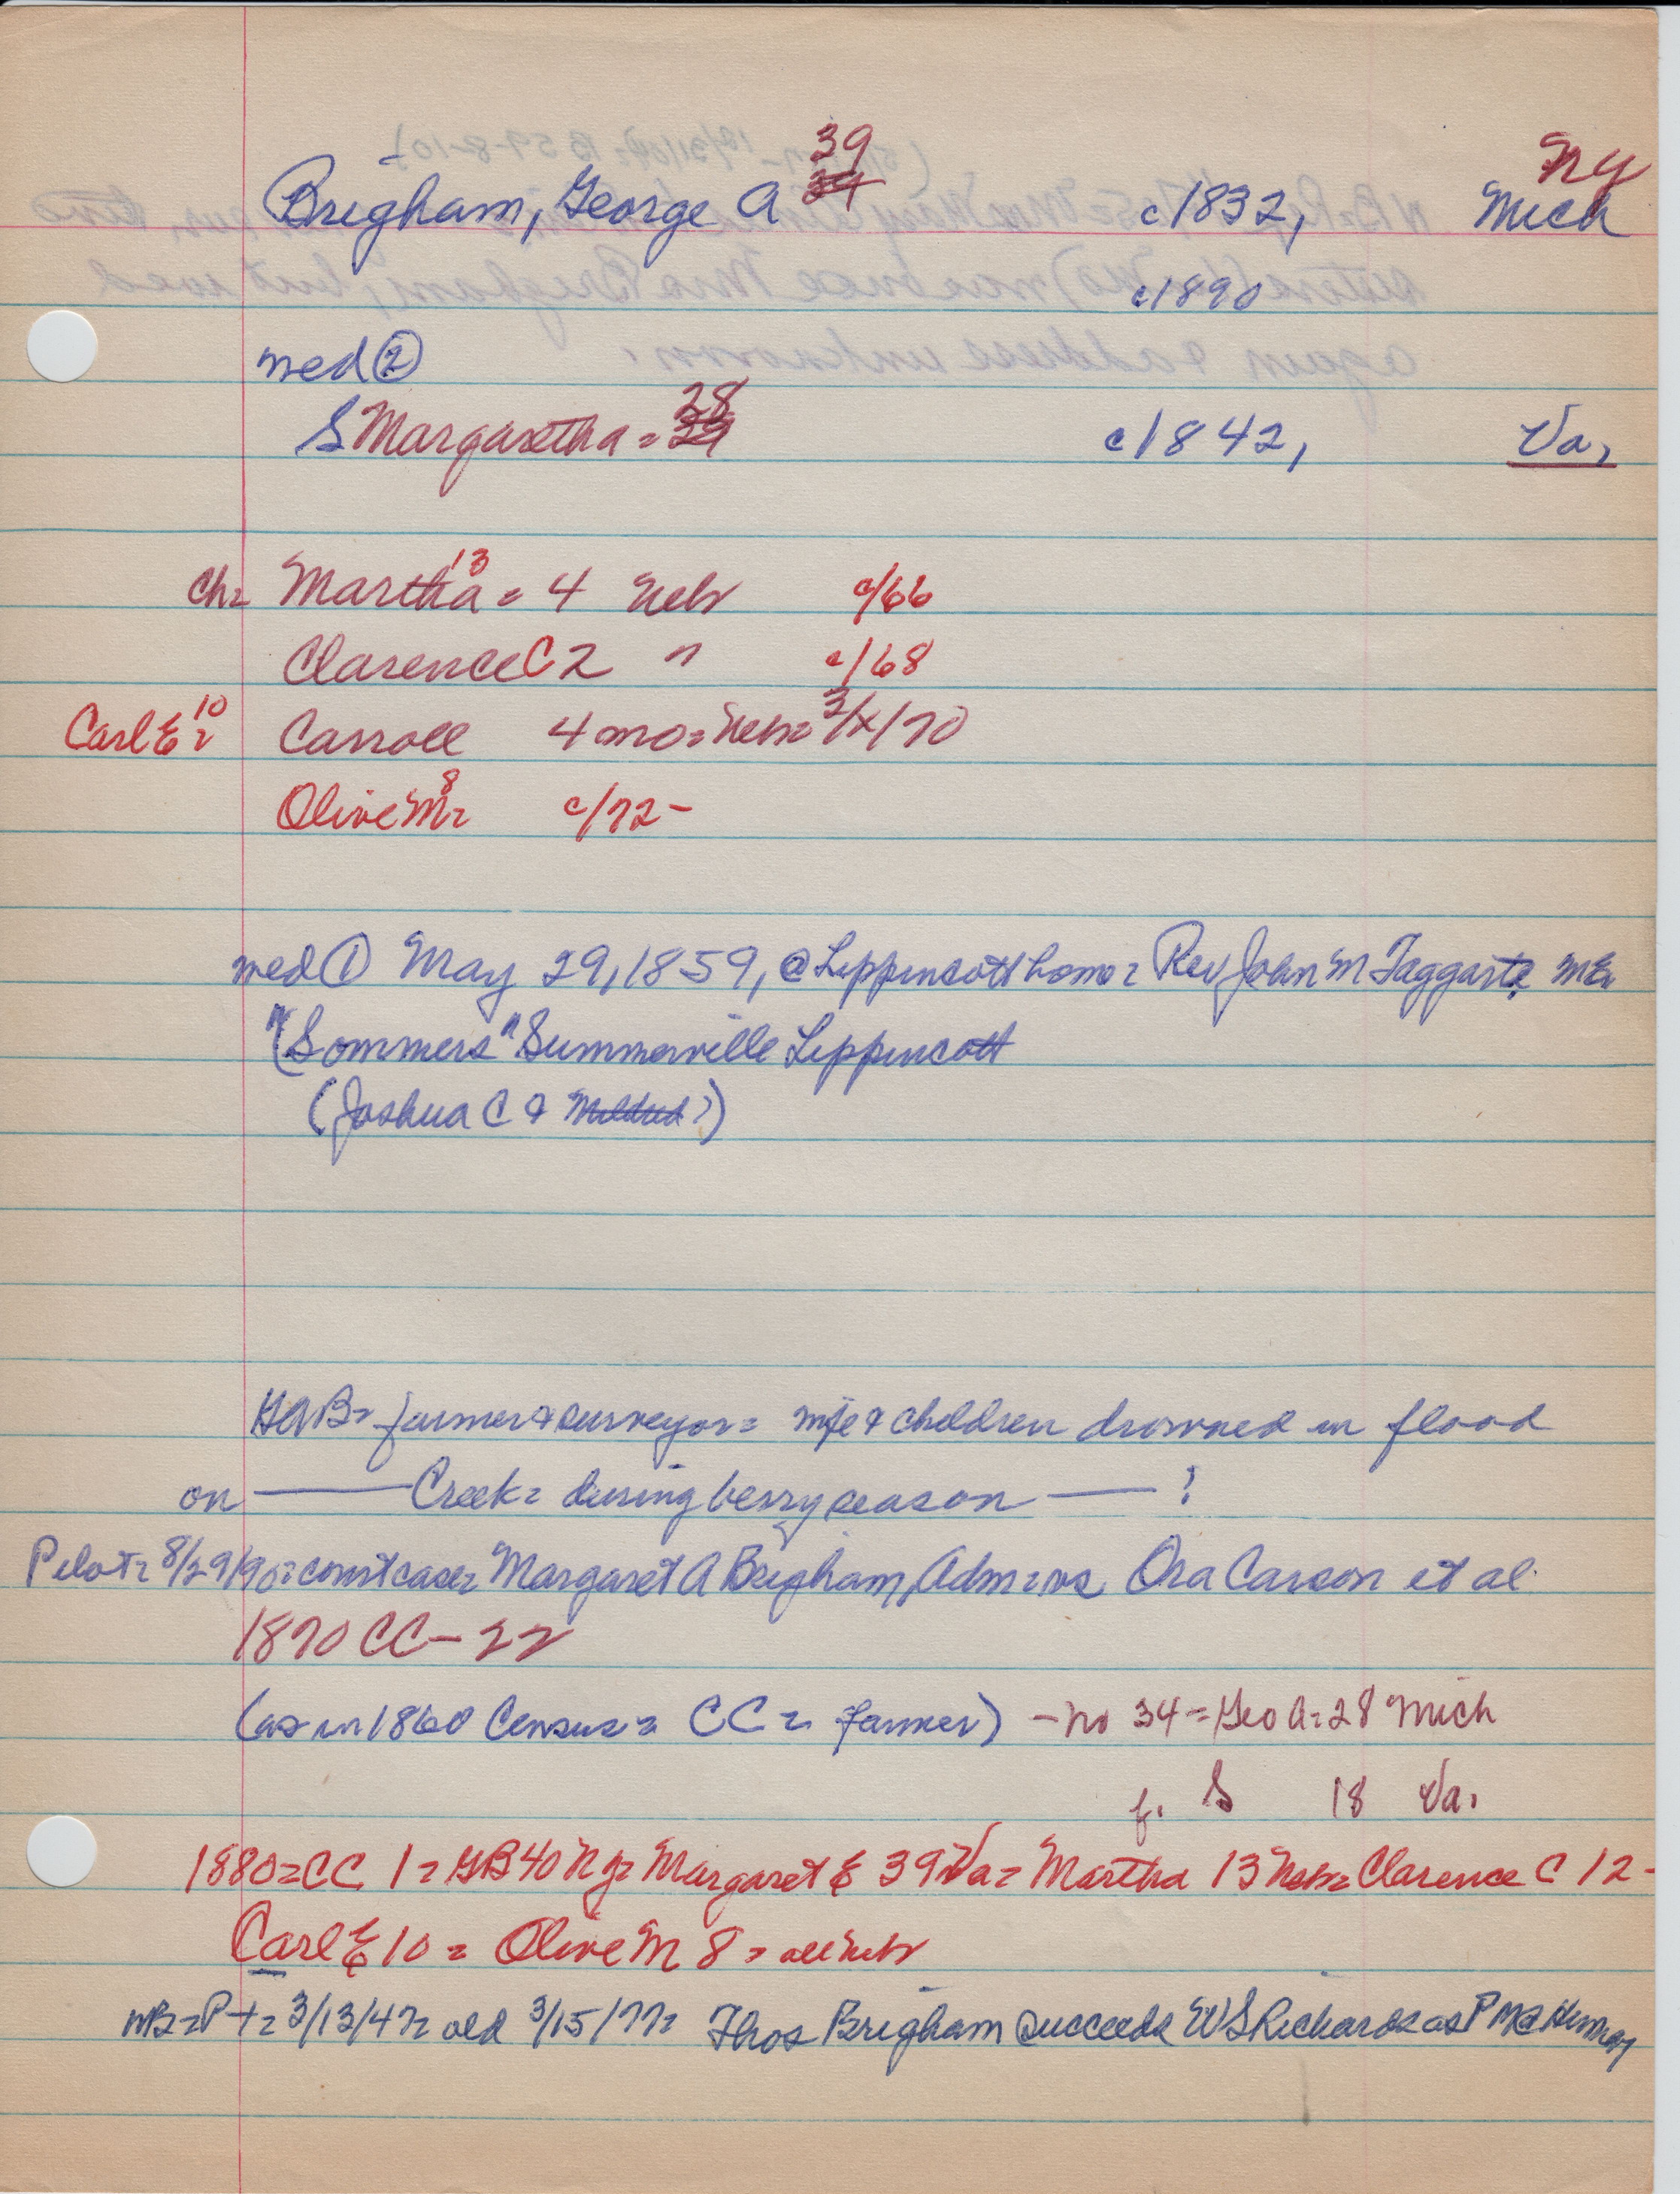 39
Brigham, George A 34 c1832, NY Mich
c1890
med ②
S Margaretha = 28 29 c1842, Va,
Ch= Martha 13 = 4 Neb c/66
Clarence C 2 " c/68
Carl E 10 = Carroll 4 mo = Neb = 3/x/70
Olive M 8 = c/72-
med ① May 29, 1859, @ Lippincott home = Rev John M Taggart, ME
"(Sommers" Summerville Lippincott
(Joshua C & Mildred?)
GAB = farmer & surveyor = wife & children drowned in flood
on —— Creek = during berry season —— ?
Pilot = 8/29/90 = court case = Margaret A Brigham, Adm = vs Ora Carson et al
1870 CC - 22
(as in 1860 Census = CC = farmer) - no 34 = Geo A = 28 Mich
f. S 18 Va.
1880 = CC 1 = GB 40 NY = Margaret E 39 Va = Martha 13 Neb = Clarence C 12 -
Carl E 10 = Olive M 8 = all Neb
NB = P+ = 3/13/47 = old 3/15/77 = Thos Brigham succeeds WS Richards as PM @